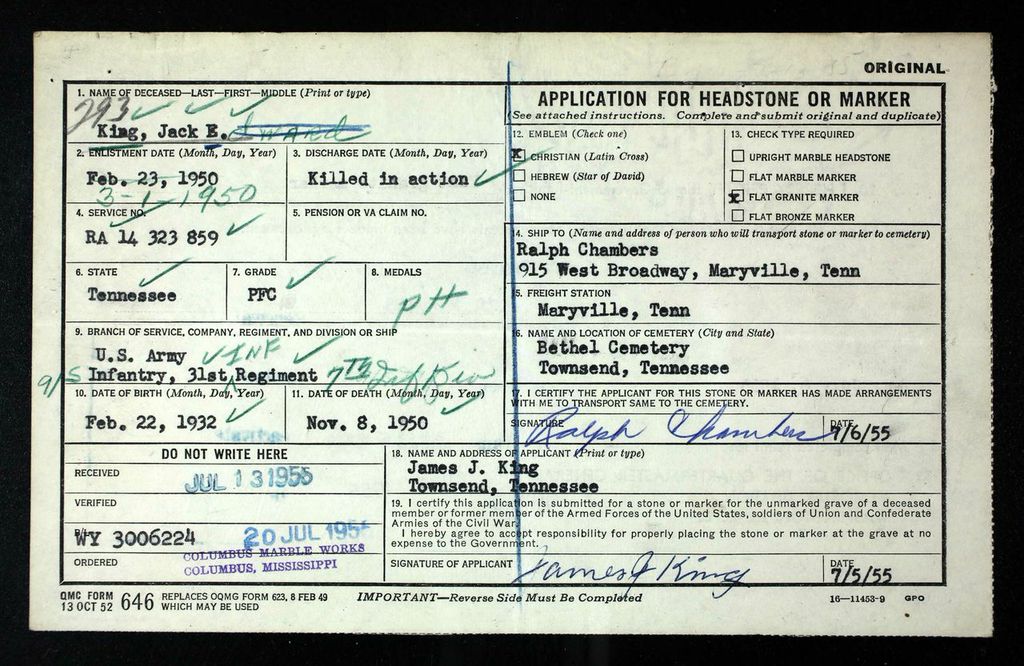 ORIGINAL
1. NAME OF DECEASED—LAST—FIRST—MIDDLE (Print or type)
293
King, Jack E. Edward
2. ENLISTMENT DATE (Month, Day, Year)
Feb. 23, 1950
3-1-1950
3. DISCHARGE DATE (Month, Day, Year)
Killed in action
4. SERVICE NO.
RA 14 323 859
5. PENSION OR VA CLAIM NO.
6. STATE
Tennessee
7. GRADE
PFC
8. MEDALS
PH
9. BRANCH OF SERVICE, COMPANY, REGIMENT, AND DIVISION OR SHIP
U.S. Army INF
9/5 Infantry, 31st Regiment 7th Inf
10. DATE OF BIRTH (Month, Day, Year)
Feb. 22, 1932
11. DATE OF DEATH (Month, Day, Year)
Nov. 8, 1950
APPLICATION FOR HEADSTONE OR MARKER
(See attached instructions. Complete and submit original and duplicate)
12. EMBLEM (Check one)
X CHRISTIAN (Latin Cross)
HEBREW (Star of David)
NONE
13. CHECK TYPE REQUIRED
UPRIGHT MARBLE HEADSTONE
FLAT MARBLE MARKER
X FLAT GRANITE MARKER
FLAT BRONZE MARKER
14. SHIP TO (Name and address of person who will transport stone or marker to cemetery)
Ralph Chambers
915 West Broadway, Maryville, Tenn
15. FREIGHT STATION
Maryville, Tenn
16. NAME AND LOCATION OF CEMETERY (City and State)
Bethel Cemetery
Townsend, Tennessee
17. I CERTIFY THE APPLICANT FOR THIS STONE OR MARKER HAS MADE ARRANGEMENTS
WITH ME TO TRANSPORT SAME TO THE CEMETERY.
SIGNATURE Ralph Chambers DATE 7/6/55
DO NOT WRITE HERE
RECEIVED
JUL 13 1955
VERIFIED
WY 3006224
20 JUL 195
ORDERED
COLUMBUS MARBLE WORKS
COLUMBUS, MISSISSIPPI
18. NAME AND ADDRESS OF APPLICANT (Print or type)
James J. King
Townsend, Tennessee
19. I certify this application is submitted for a stone or marker for the unmarked grave of a deceased
member or former member of the Armed Forces of the United States, soldiers of Union and Confederate
Armies of the Civil War.
I hereby agree to accept responsibility for properly placing the stone or marker at the grave at no
expense to the Government.
SIGNATURE OF APPLICANT James J King DATE 7/5/55
QMC FORM
13 OCT 52 646 REPLACES OQMG FORM 623, 8 FEB 49
WHICH MAY BE USED
IMPORTANT—Reverse Side Must Be Completed
16—11453-9 GPO